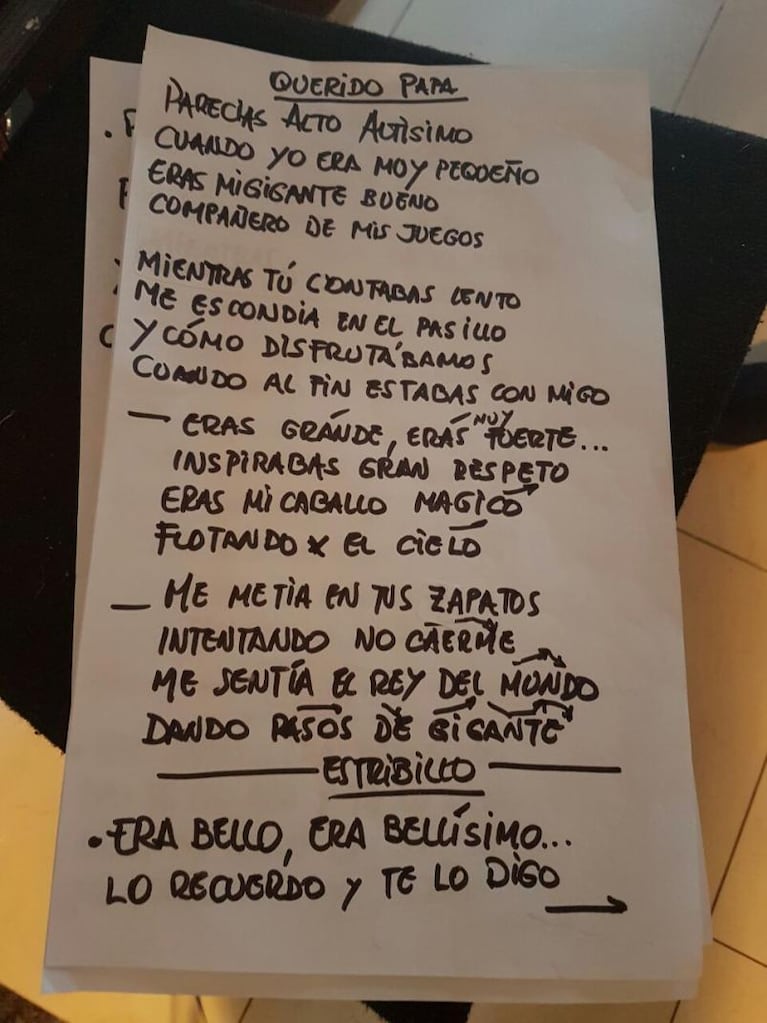 QUERIDO PAPA
PARECIAS ALTO ALTÌSIMO
CUANDO YO ERA MOY PEQUEÑO
ERAS MI GIGANTE BUENO
COMPAÑERO DE MIS JUEGOS
MIENTRAS TÚ CONTABAS LENTO
ME ESCONDIA EN EL PASILLO
Y CÓMO DISFRUTÁBAMOS
CUANDO AL FIN ESTABAS CON MIGO
— ERAS GRANDE, ERAS MUY FUERTE...
INSPIRABAS GRAN RESPETO
ERAS MI CABALLO MAGICO
FLOTANDO X EL CIELO
— ME METIA EN TUS ZAPATOS
INTENTANDO NO CAERME
ME SENTÍA EL REY DEL MUNDO
DANDO PASOS DE GIGANTE
ESTRIBILLO
• ERA BELLO, ERA BELLÍSIMO...
LO RECUERDO Y TE LO DIGO